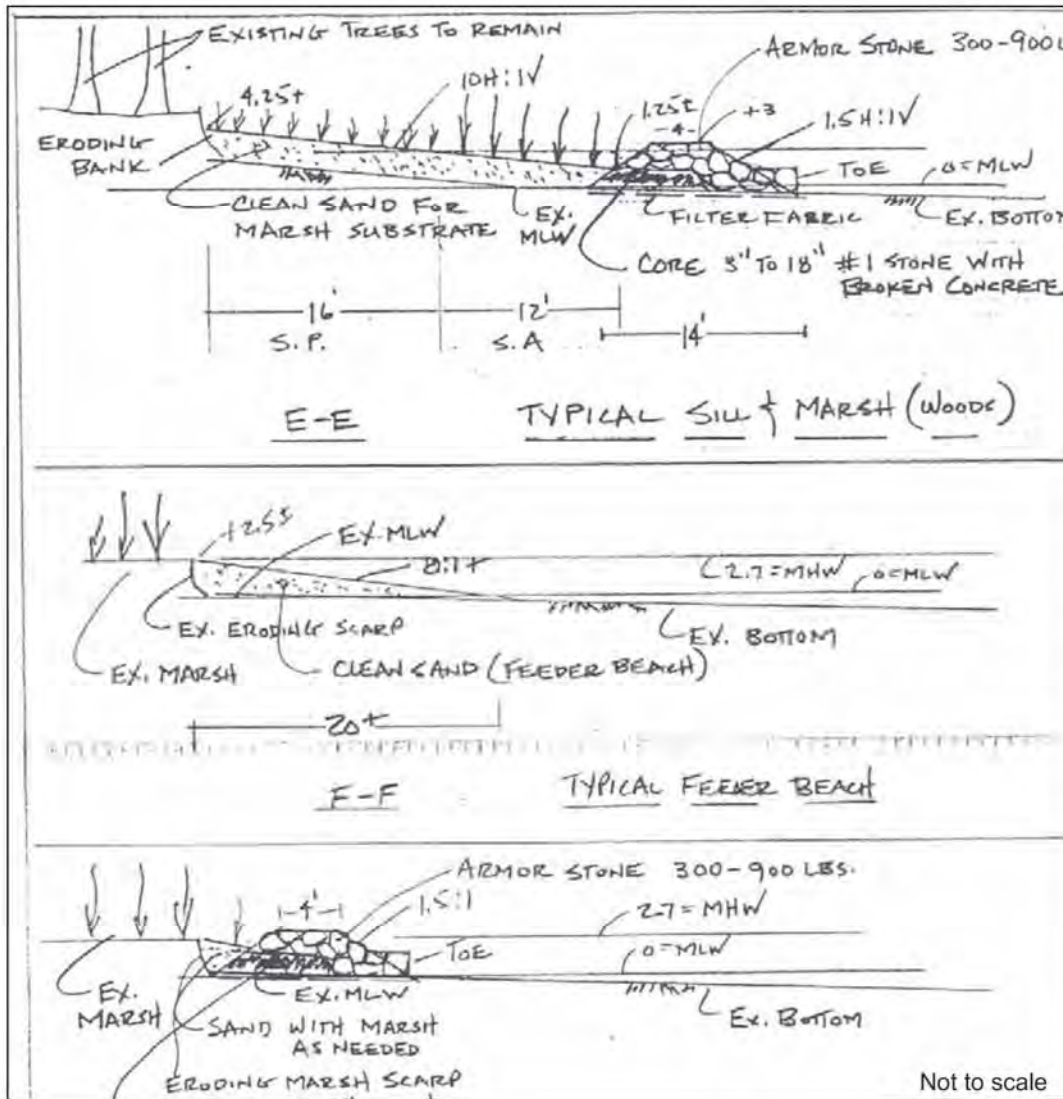 EXISTING TREES TO REMAIN
ARMOR STONE 300-900
4.25±
10H:1V
1.25±
-4-
+3
1.5H:1V
ERODING
BANK
TOE
0=MLW
CLEAN SAND FOR
MARSH SUBSTRATE
EX.
MLW
FILTER FABRIC
EX. BOTTOM
CORE 3" TO 18" #1 STONE WITH
BROKEN CONCRETE
16'
12'
14'
S.P.
S.A
E-E
TYPICAL SILL & MARSH (WOODS)
+2.5±
EX.MLW
8:1±
2.7=MHW
0=MLW
EX. ERODING SCARP
EX. BOTTOM
EX. MARSH
CLEAN SAND (FEEDER BEACH)
20±
F-F
TYPICAL FEEDER BEACH
ARMOR STONE 300-900 LBS.
4'
1.5:1
2.7=MHW
TOE
0=MLW
EX.
MARSH
EX.MLW
SAND WITH MARSH
AS NEEDED
EX. BOTTOM
ERODING MARSH SCARP
Not to scale